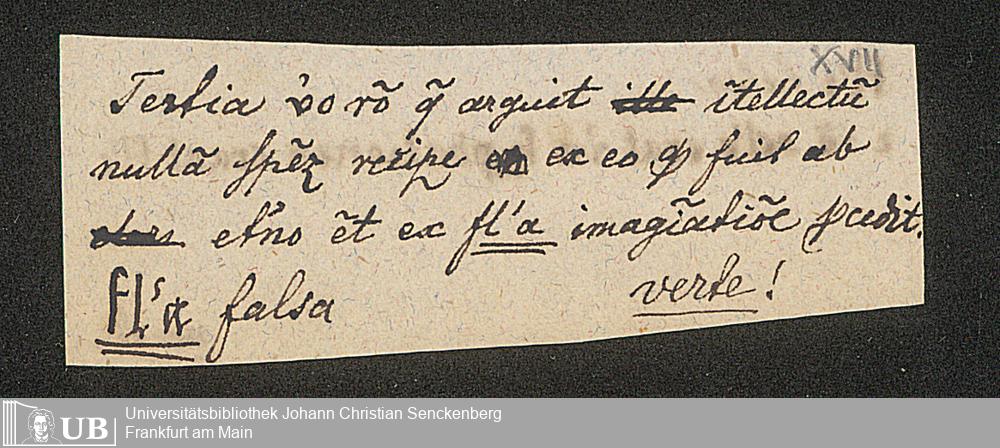 XVII
Tertia v̾o rō q̄ arguit ĩtellectũ
nullã spẽꝫ recipe ex eo ꝙ fuit ab
et'no ẽt ex fl'a imagĩatiõe ꝓcedit.
fl'a falsa verte!
UB Universitätsbibliothek Johann Christian Senckenberg
Frankfurt am Main